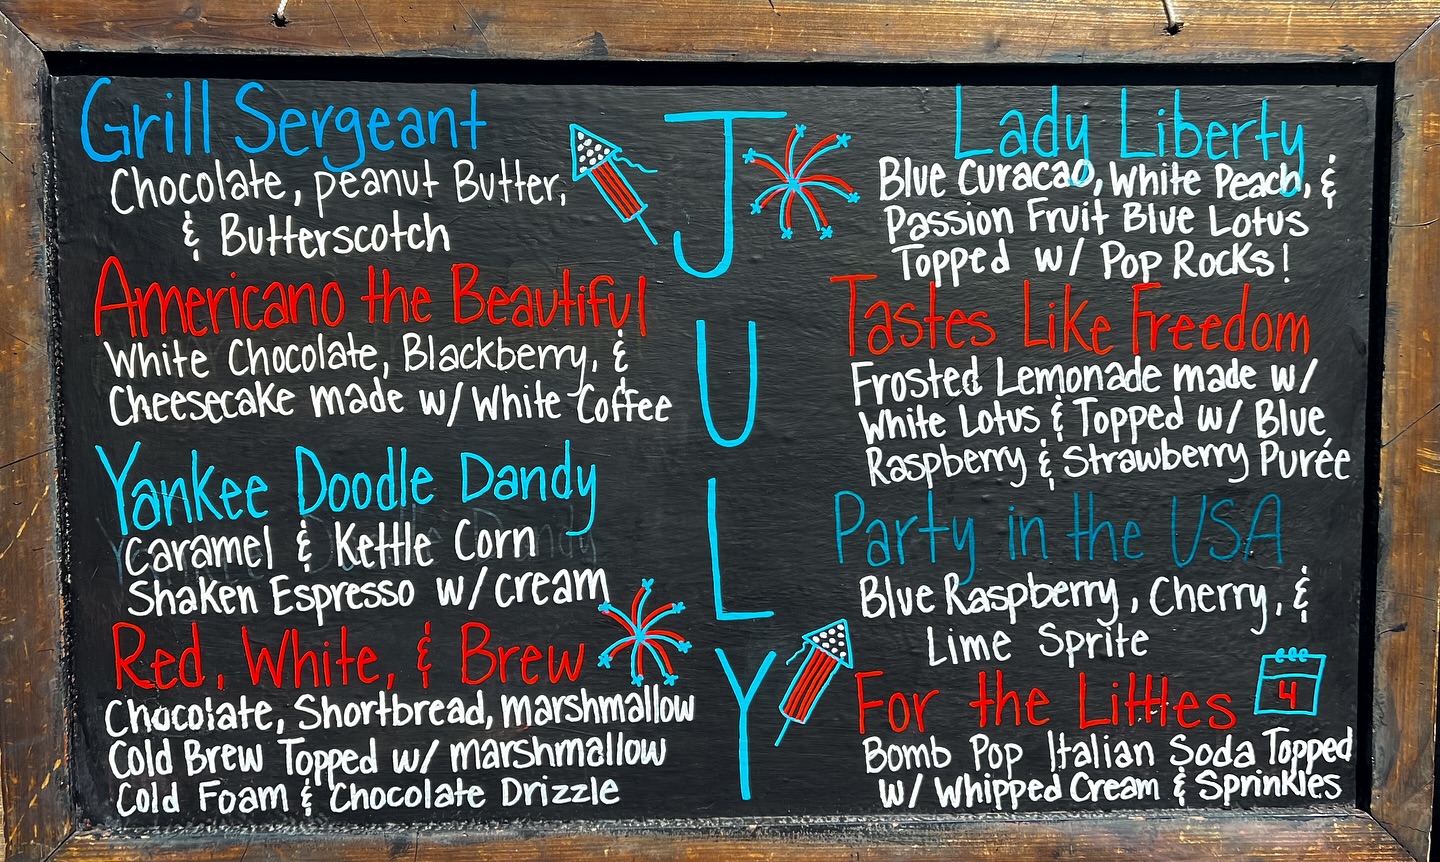 Grill Sergeant
Chocolate, peanut Butter,
& Butterscotch
Americano the Beautiful
White Chocolate, Blackberry, &
Cheesecake made w/ White Coffee
Yankee Doodle Dandy
Caramel & Kettle Corn
Shaken Espresso w/ cream
Red, White, & Brew
Chocolate, Shortbread, marshmallow
Cold Brew Topped w/ marshmallow
Cold Foam & Chocolate Drizzle
J
U
L
Y
Lady Liberty
Blue Curacao, White Peach, &
Passion Fruit Blue Lotus
Topped w/ Pop Rocks!
Tastes Like Freedom
Frosted Lemonade made w/
White Lotus & Topped w/ Blue
Raspberry & Strawberry Purée
Party in the USA
Blue Raspberry, Cherry, &
Lime Sprite
For the Littles
4
Bomb Pop Italian Soda Topped
w/ Whipped Cream & Sprinkles